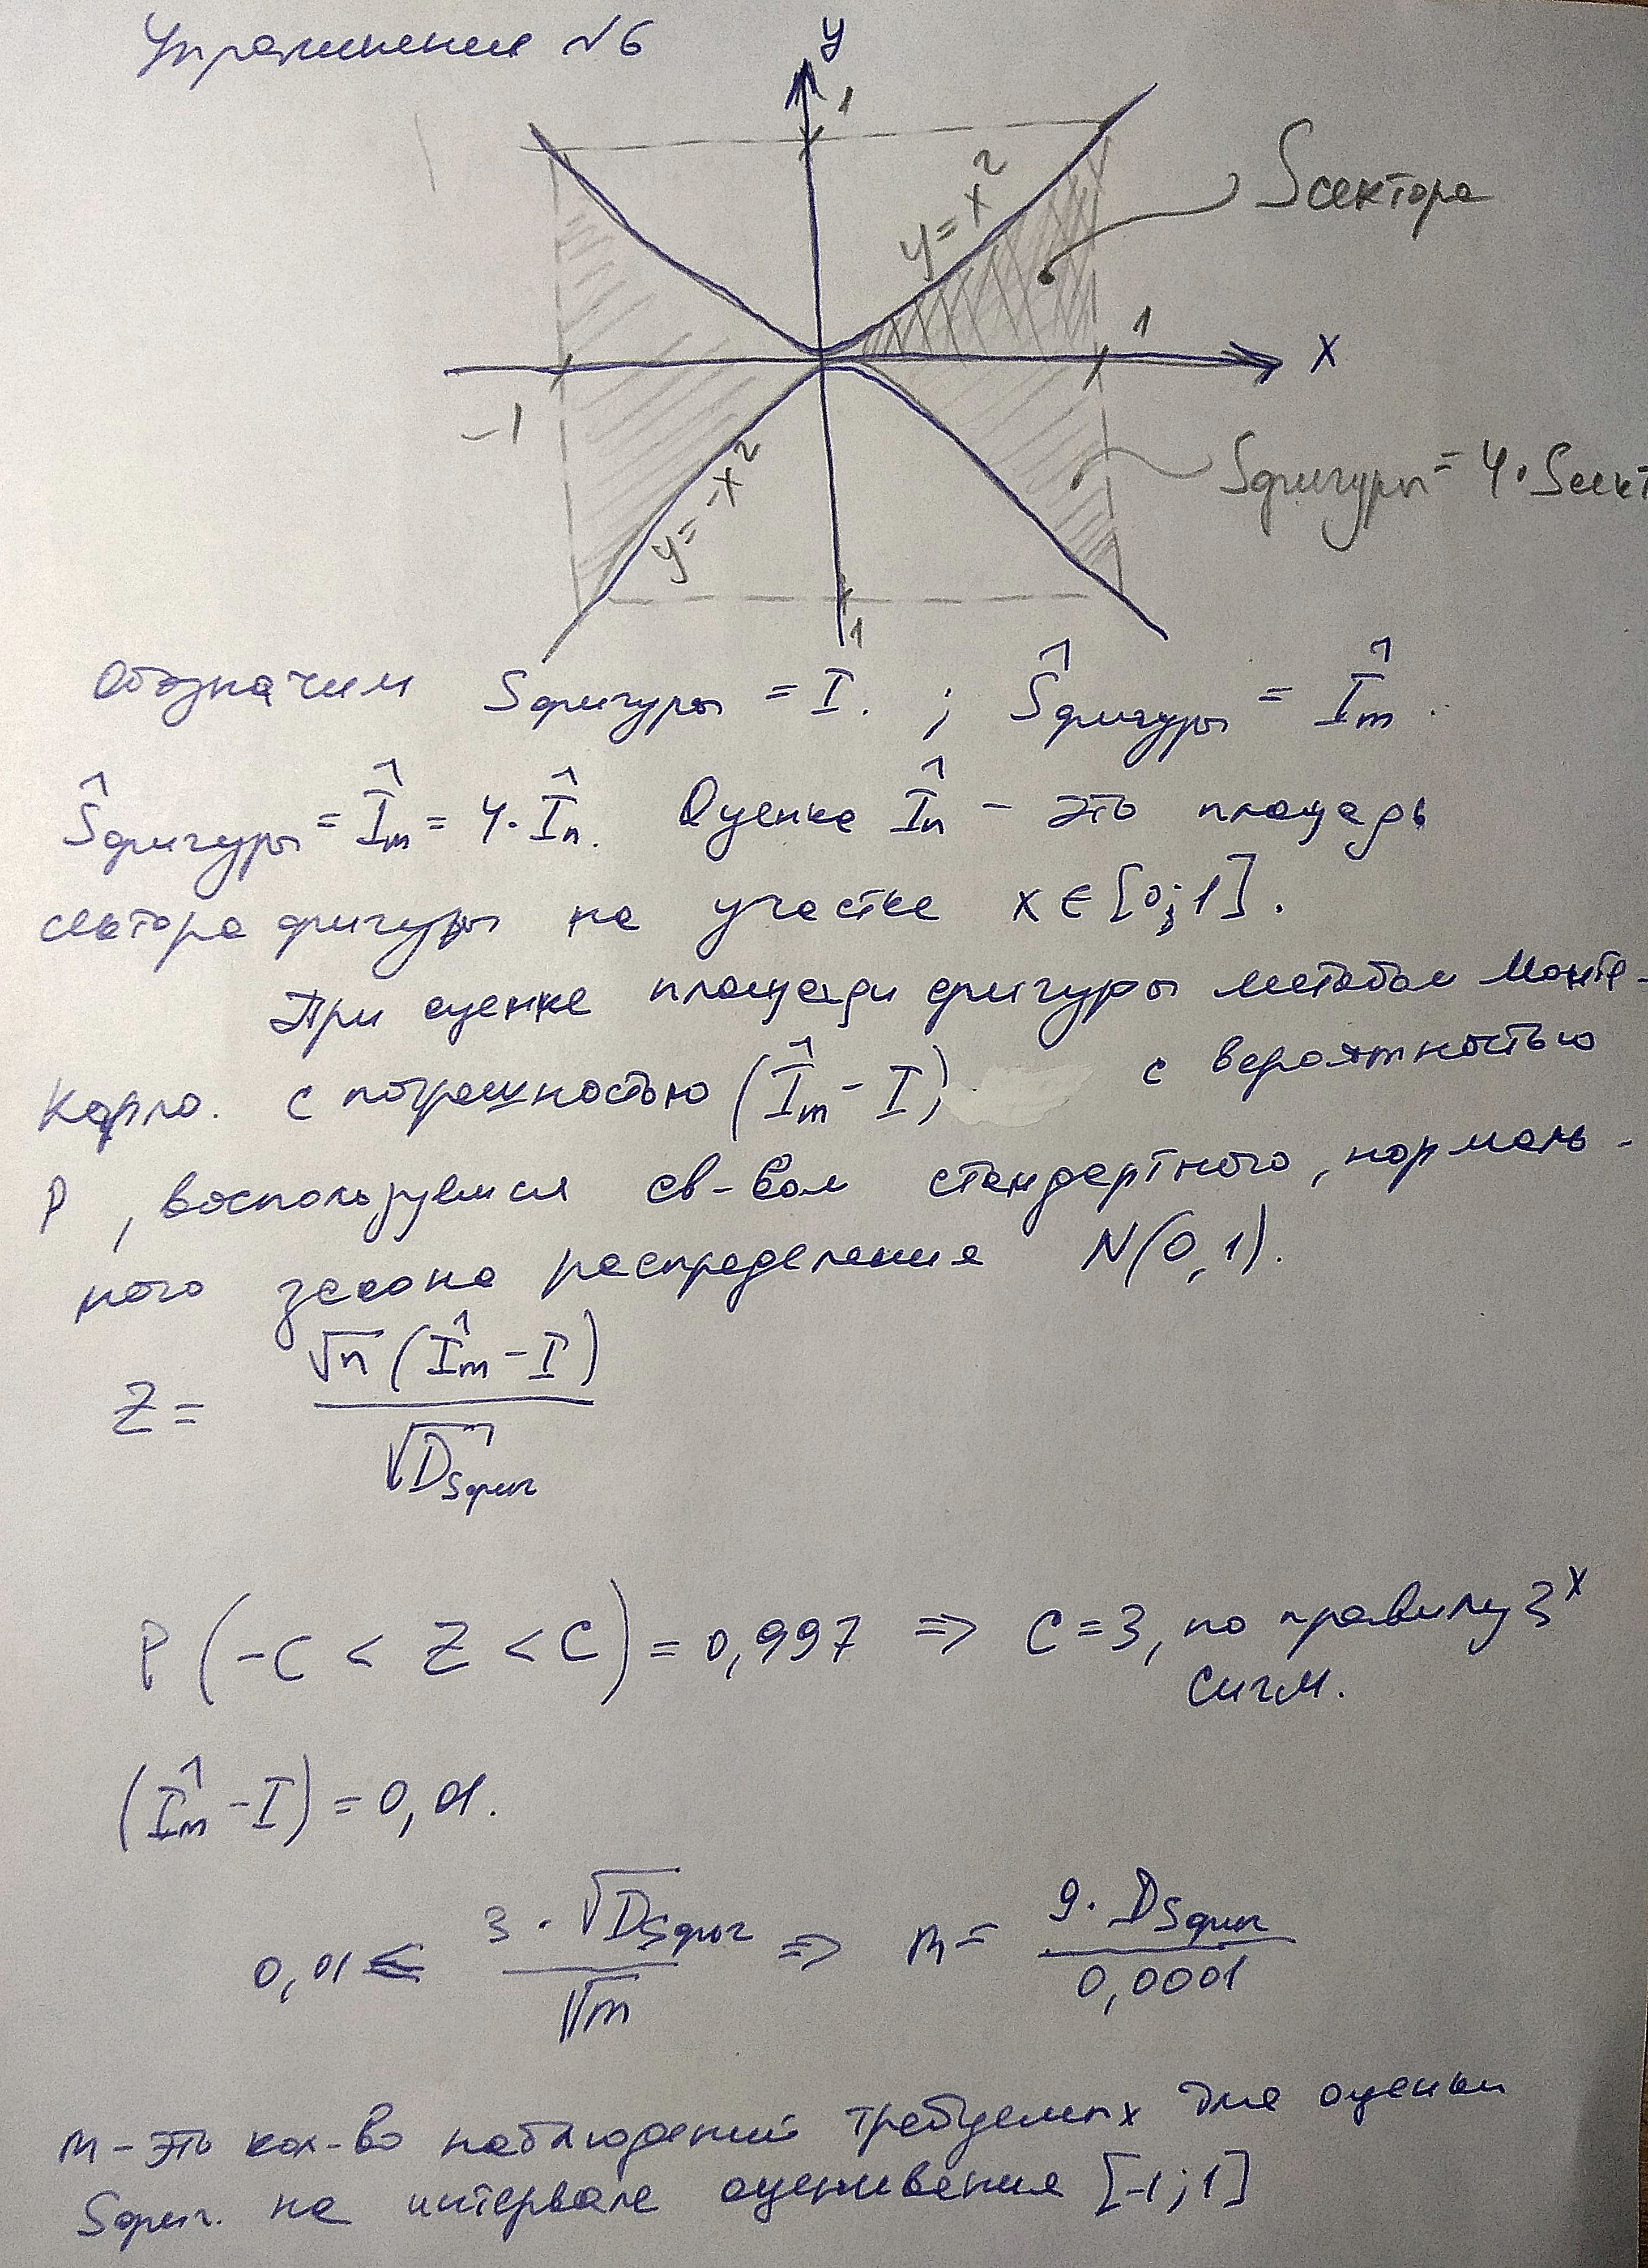 Упражнение №6
y
1
y = x²
Sсектора
1
x
-1
y = -x²
Sфигуры = 4·Sсект
1
Обозначим Sфигуры = I. ; Ŝфигуры = Îm.
Ŝфигуры = Îm = 4·În. Оценка În – это площадь
сектора фигуры на участке x ∈ [0; 1].
При оценке площади фигуры методом Монте-
Карло. с погрешностью (Îm - I) с вероятностью
P, воспользуемся св-вом стандартного, нормаль-
ного закона распределения N(0, 1).
Z = √n (Îm - I) / √D̂Sфиг
P(-C < Z < C) = 0,997 ⇒ C = 3, по правилу 3х
сигм.
(Îm - I) = 0,01.
0,01 ≤ 3·√DSфиг / √m ⇒ m = 9·DSфиг / 0,0001
m – это кол-во наблюдений требуемых для оценки
Sфиг. на интервале оценивения [-1; 1]